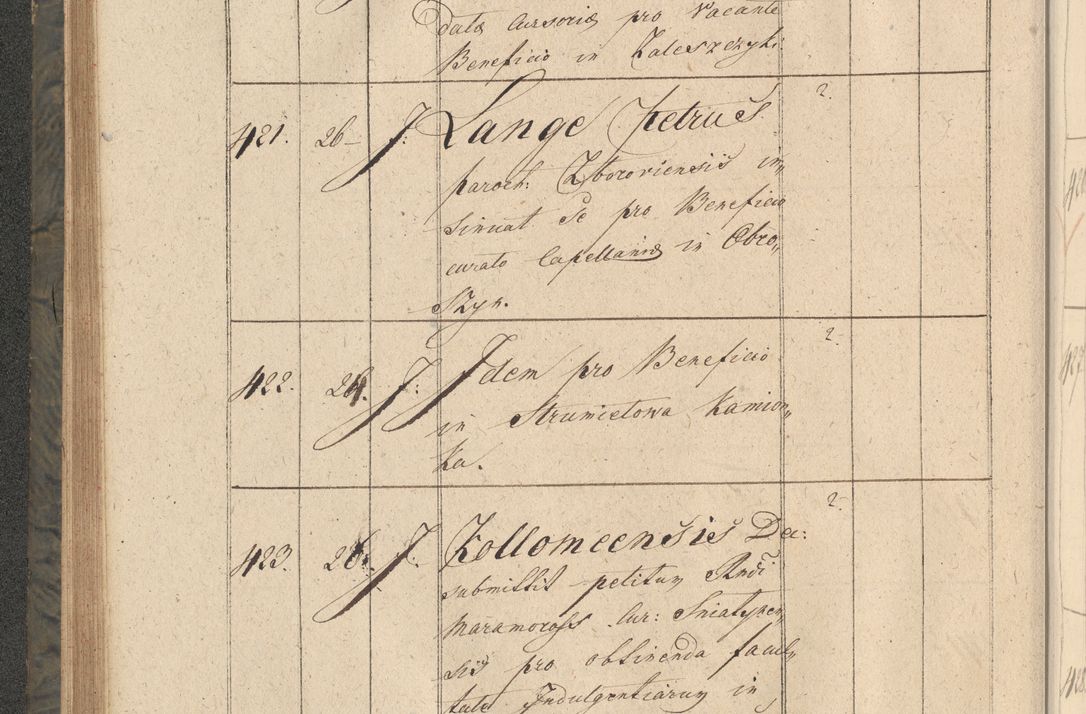 data Cursoria pro Vacante
Beneficio in Zaleszczyki
2.
421. 26 – J: Lange Petrus
paroch: Zboroviensis in„
sinuat se pro Beneficio
curato Capellaniae in Obro„
szyn.
2.
422. 26. J: Idem pro Beneficio
in Strumielowa Kamion„
ka.
2.
423. 26. J. Kollomeensis De:
submittit petitum Rndi
Maramoross Cur: Sniatynen„
sis pro obtinenda facul„
tate Indulgentiarum in